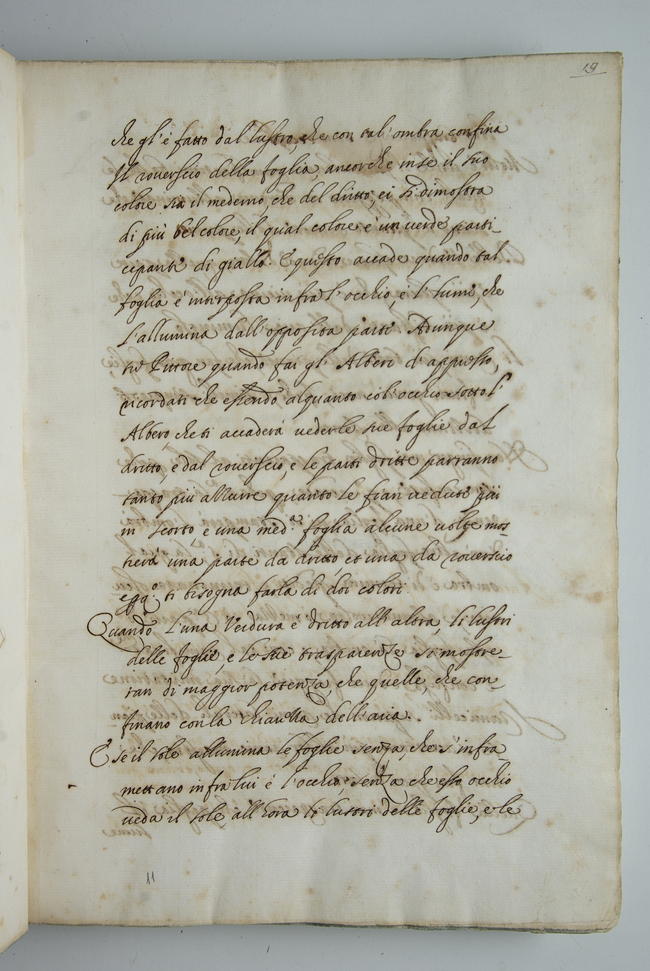 19
che gl'è fatto dal lustro, che con tal'ombra confina
Il roverscio della foglia, ancorche inse il suo
colore sia il medemo, che del dritto, ei si dimostra
di più bel colore, il qual colore è un verde parti-
cipante di giallo. E questo accade quando tal
foglia è interposta infra l'occhio, e'l lume, che
l'allumina dall'opposita parte. Adunque
tu Pittore quando fai gl'Alberi d'appresso,
ricordati che essendo alquanto col'occhio sotto l'
Albero che ti accaderà vederle sue foglie dal
dritto, e dal roverscio, e le parti dritte parranno
tanto più allure quanto le fian vedute più
in scorto, e una med.ª foglia alcune volte mos-
trerà una parte da dritto, et una da roverscio
e ti bisogna farla di doi colori
Quando l'una Verdura è dritto all'altra, li lustri
delle foglie e le sue trasparenze si mostre-
ran di maggior potenza, che quelle, che con-
finano con la chiarezza dell'aria.
E se il sole allumina le foglie senza, che s'infra
mettano infra lui è l'occhio, senza che esso occhio
veda il sole all'hora li lustri delle foglie, e le
11